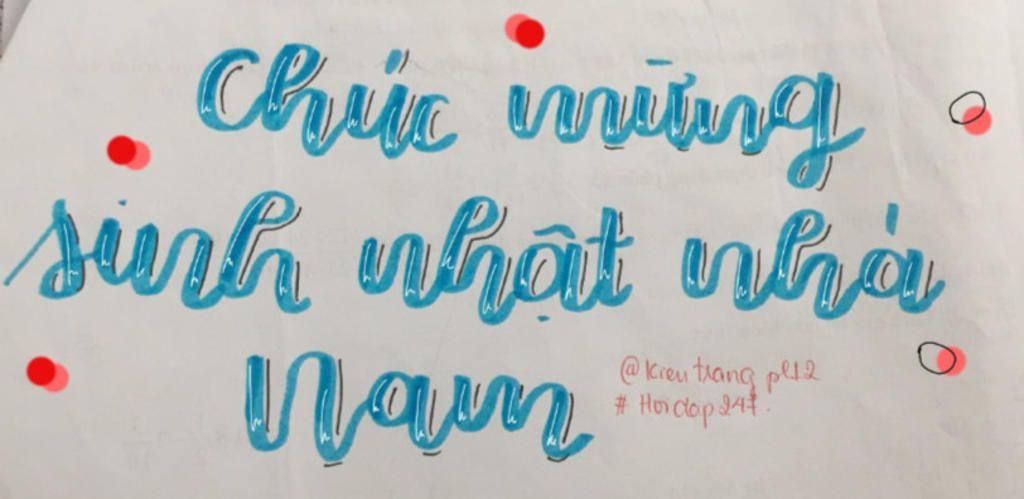 Chúc mừng
sinh nhật nhá
Nam
@kieutrang pl12
# Hoidap247.